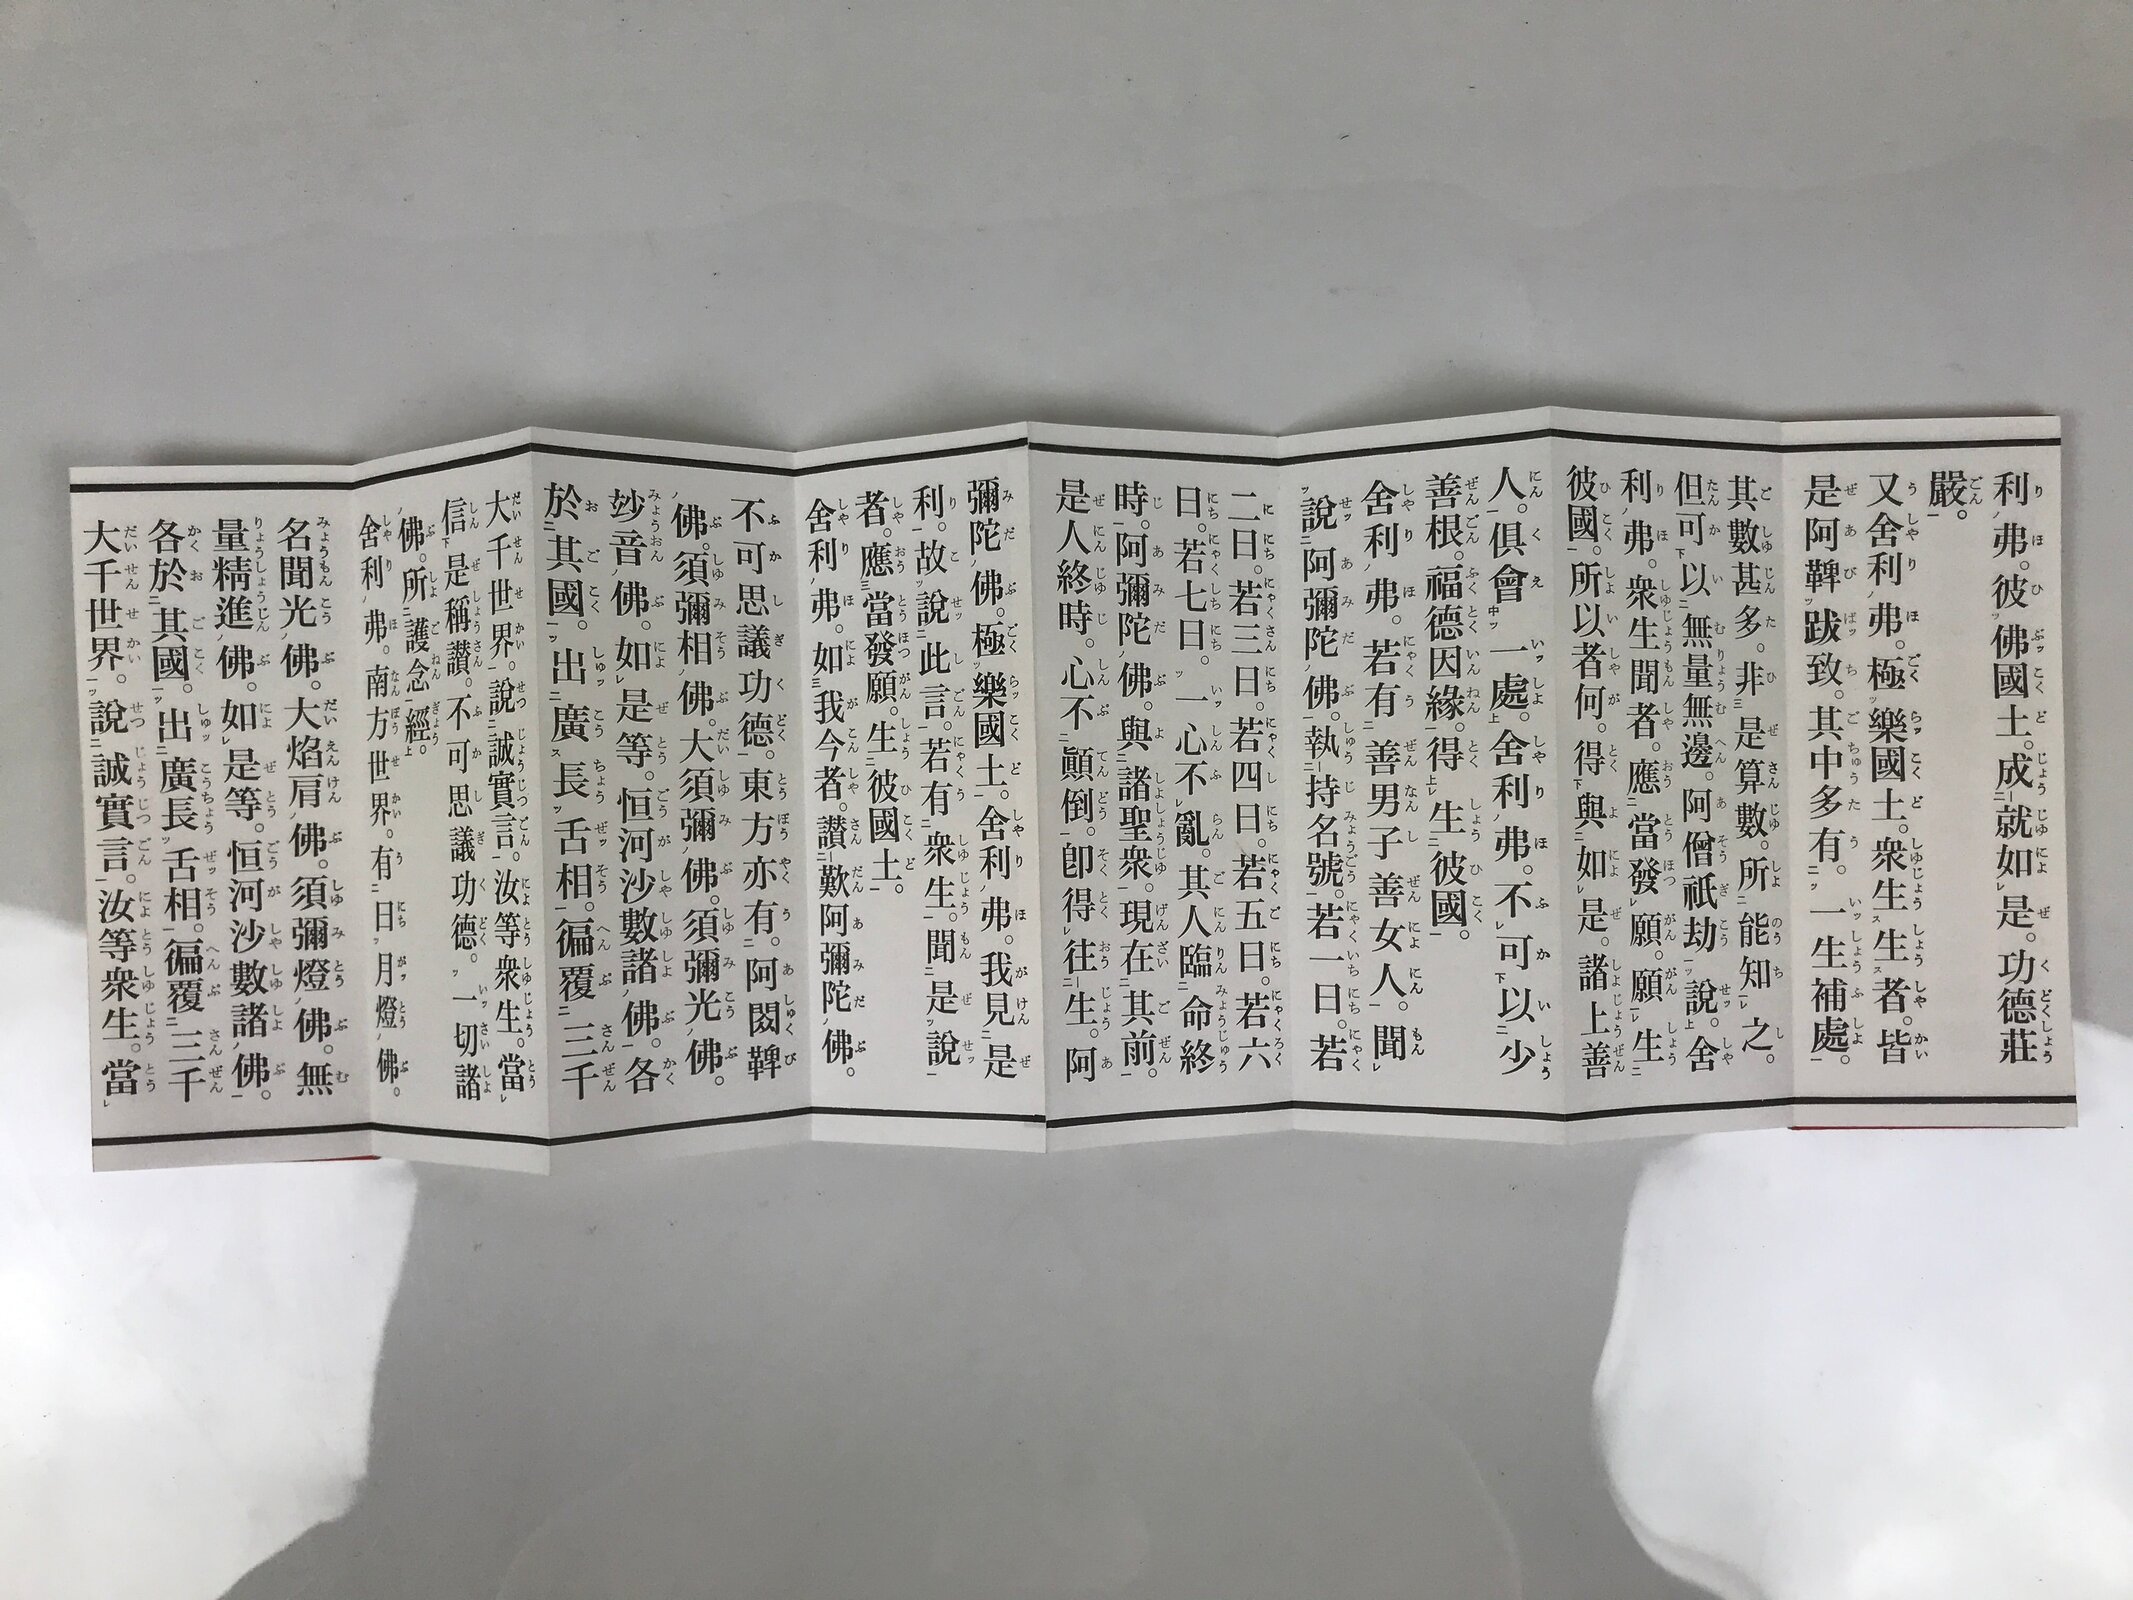 利弗。彼佛國土。成就如是。功德莊
嚴。
又舍利弗。極樂國土。衆生生者。皆
是阿鞞跋致。其中多有。一生補處。
其數甚多。非是算數。所能知之。
但可以無量無邊。阿僧祇劫說。舍
利弗。衆生聞者。應當發願。願生
彼國。所以者何。得與如是。諸上善
人。俱會一處。舍利弗。不可以少
善根。福德因緣。得生彼國。
舍利弗。若有善男子善女人。聞
說阿彌陀佛。執持名號。若一日。若
二日。若三日。若四日。若五日。若六
日。若七日。一心不亂。其人臨命終
時。阿彌陀佛。與諸聖衆。現在其前。
是人終時。心不顚倒。卽得往生。阿
彌陀佛。極樂國土。舍利弗。我見是
利。故說此言。若有衆生。聞是說
者。應當發願。生彼國土。
舍利弗。如我今者。讚歎阿彌陀佛。
不可思議功德。東方亦有。阿閦鞞
佛。須彌相佛。大須彌佛。須彌光佛。
妙音佛。如是等。恒河沙數諸佛。各
於其國。出廣長舌相。徧覆三千
大千世界。說誠實言。汝等衆生。當
信是稱讚。不可思議功德。一切諸
佛。所護念經。
舍利弗。南方世界。有日月燈佛。
名聞光佛。大焰肩佛。須彌燈佛。無
量精進佛。如是等。恒河沙數諸佛。
各於其國。出廣長舌相。徧覆三千
大千世界。說誠實言。汝等衆生。當